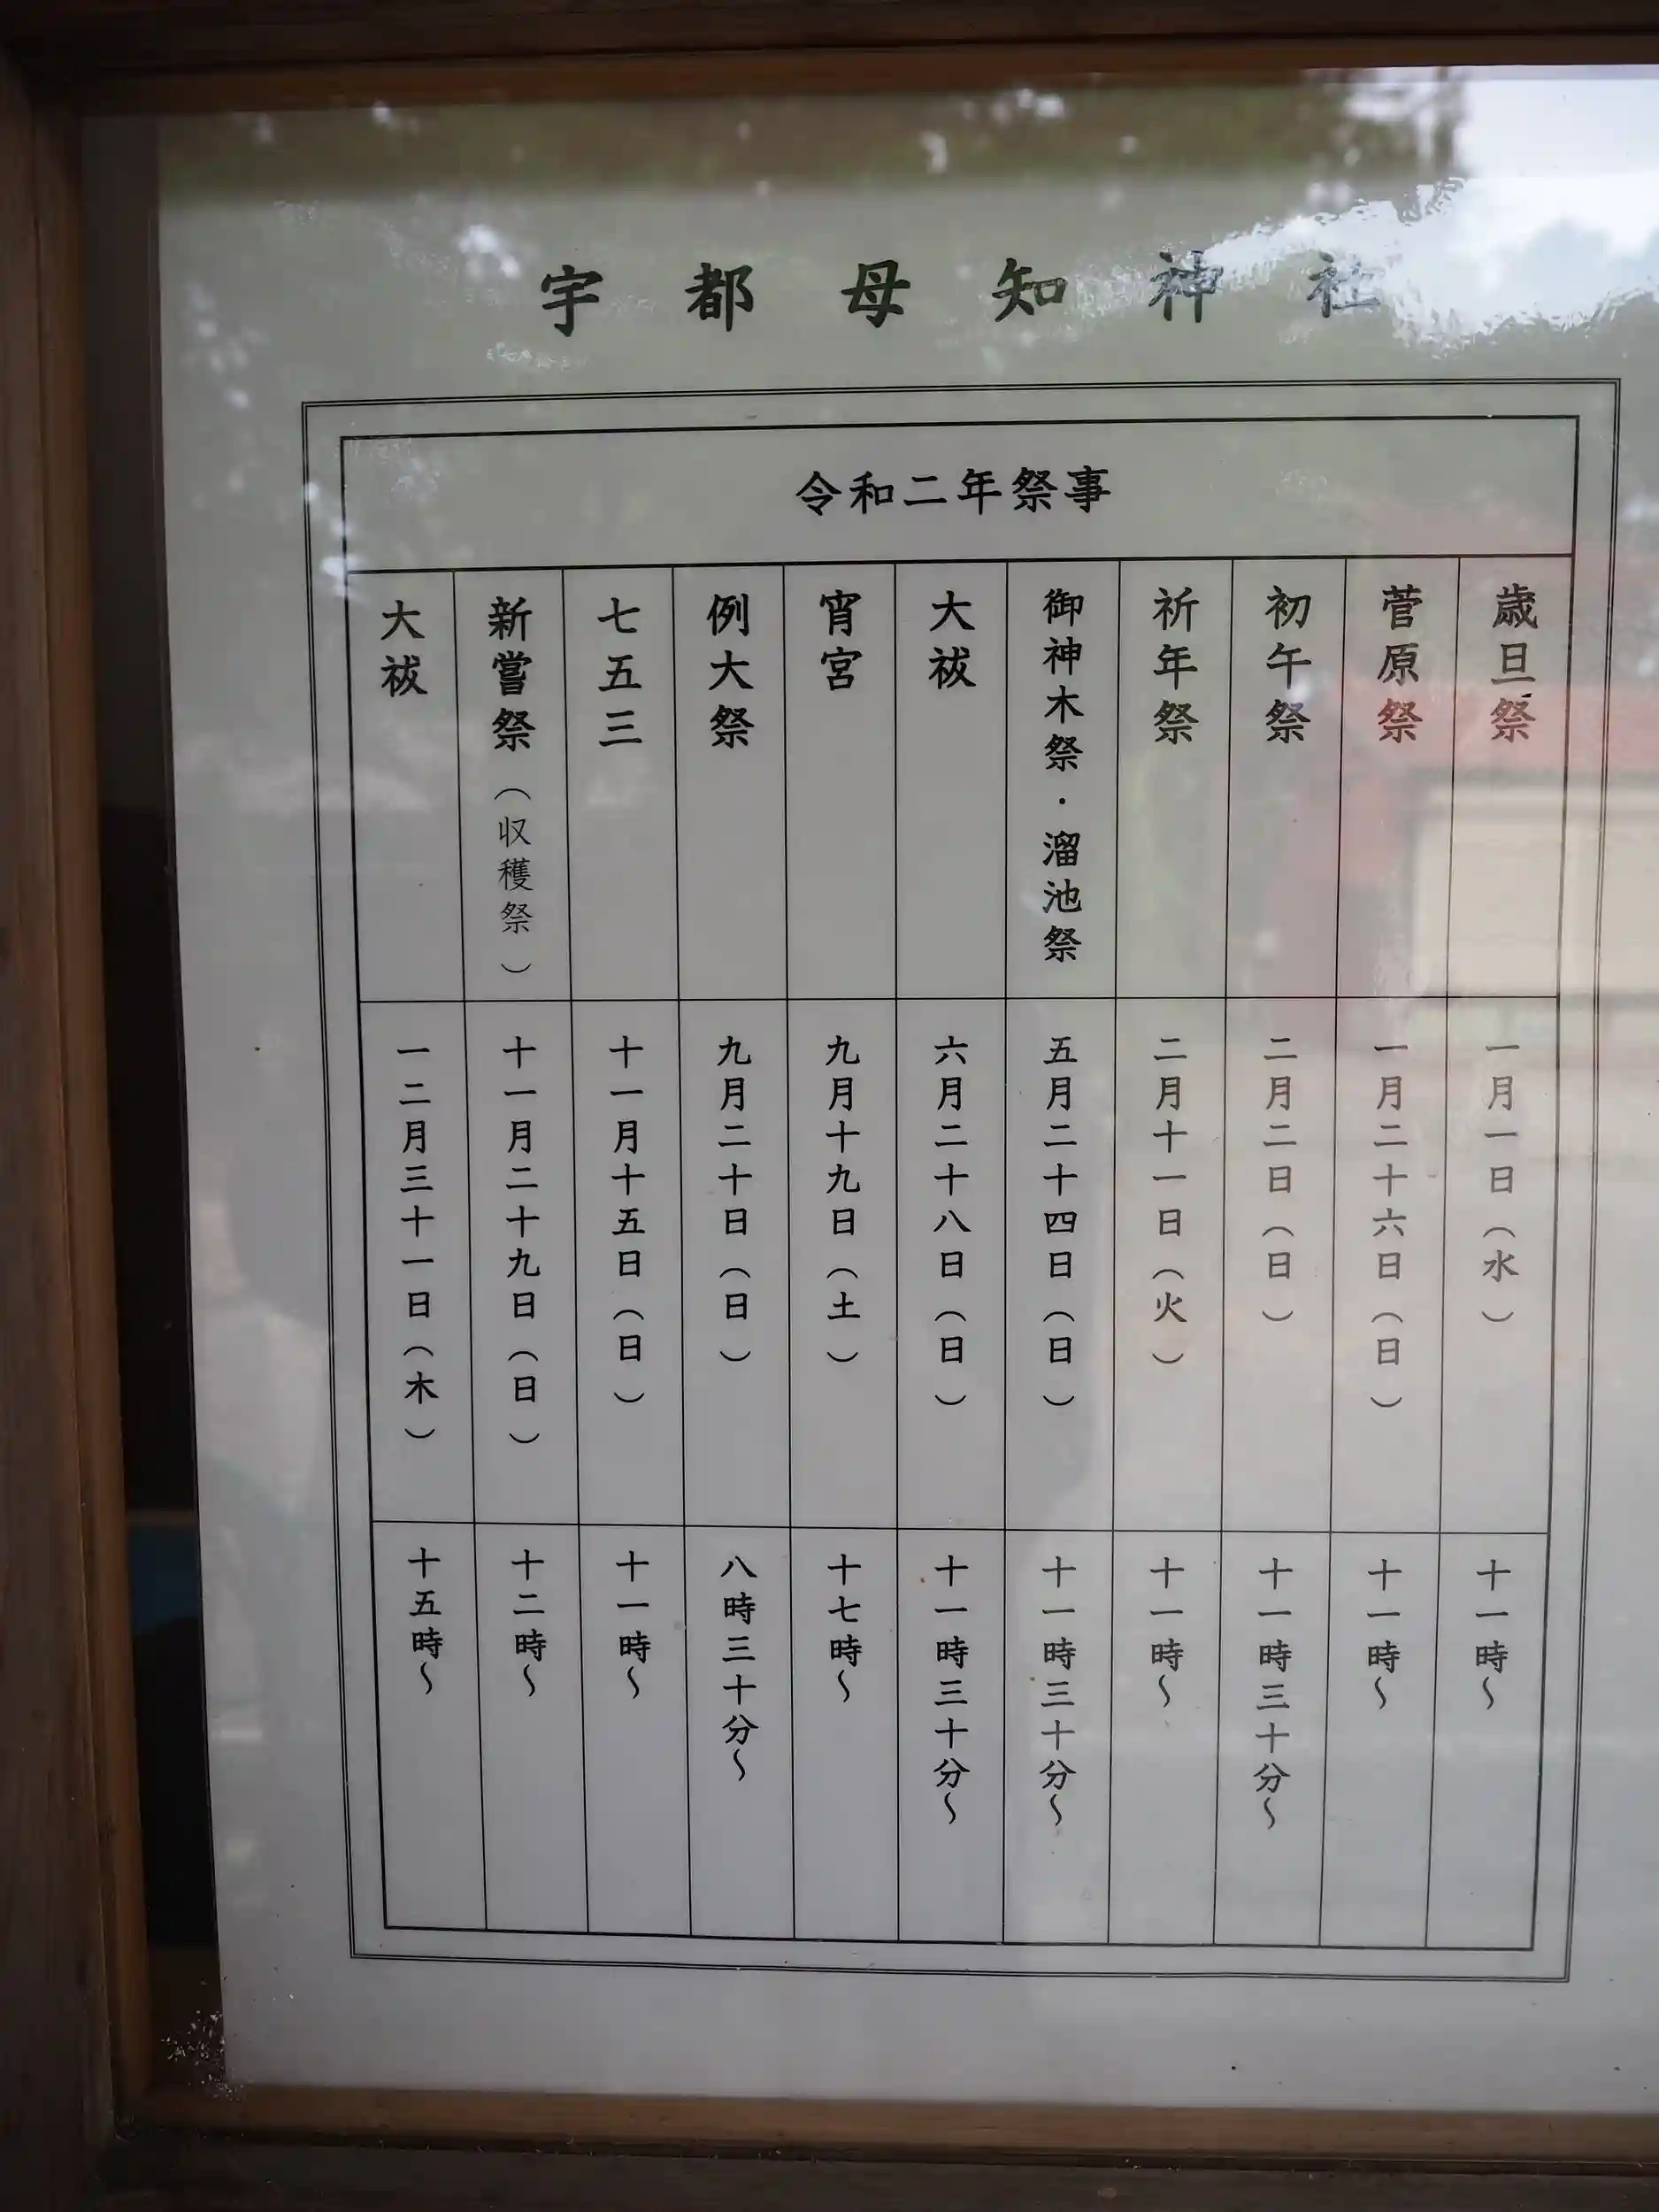 宇都母知神社
令和二年祭事
歳旦祭
一月一日（水）
十一時～
菅原祭
一月二十六日（日）
十一時～
初午祭
二月二日（日）
十一時三十分～
祈年祭
二月十一日（火）
十一時～
御神木祭・溜池祭
五月二十四日（日）
十一時三十分～
大祓
六月二十八日（日）
十一時三十分～
宵宮
九月十九日（土）
十七時～
例大祭
九月二十日（日）
八時三十分～
七五三
十一月十五日（日）
十一時～
新嘗祭（収穫祭）
十一月二十九日（日）
十二時～
大祓
一二月三十一日（木）
十五時～